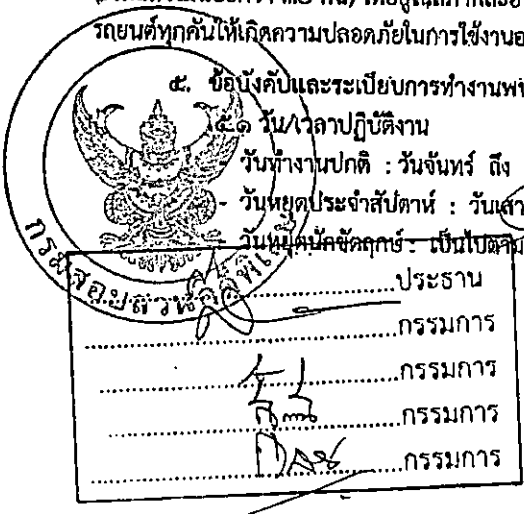 รถยนต์ทุกคันให้เกิดความปลอดภัยในการใช้งานอ
๕. ข้อบังคับและระเบียบการทำงานพ
๕.๑ วัน/เวลาปฏิบัติงาน
วันทำงานปกติ : วันจันทร์ ถึง
- วันหยุดประจำสัปดาห์ : วันเสา
- วันหยุดนักขัตฤกษ์ : เป็นไปตาม
กรมสอบสวนคดีพิเศษ
ประธาน
กรรมการ
กรรมการ
กรรมการ
กรรมการ